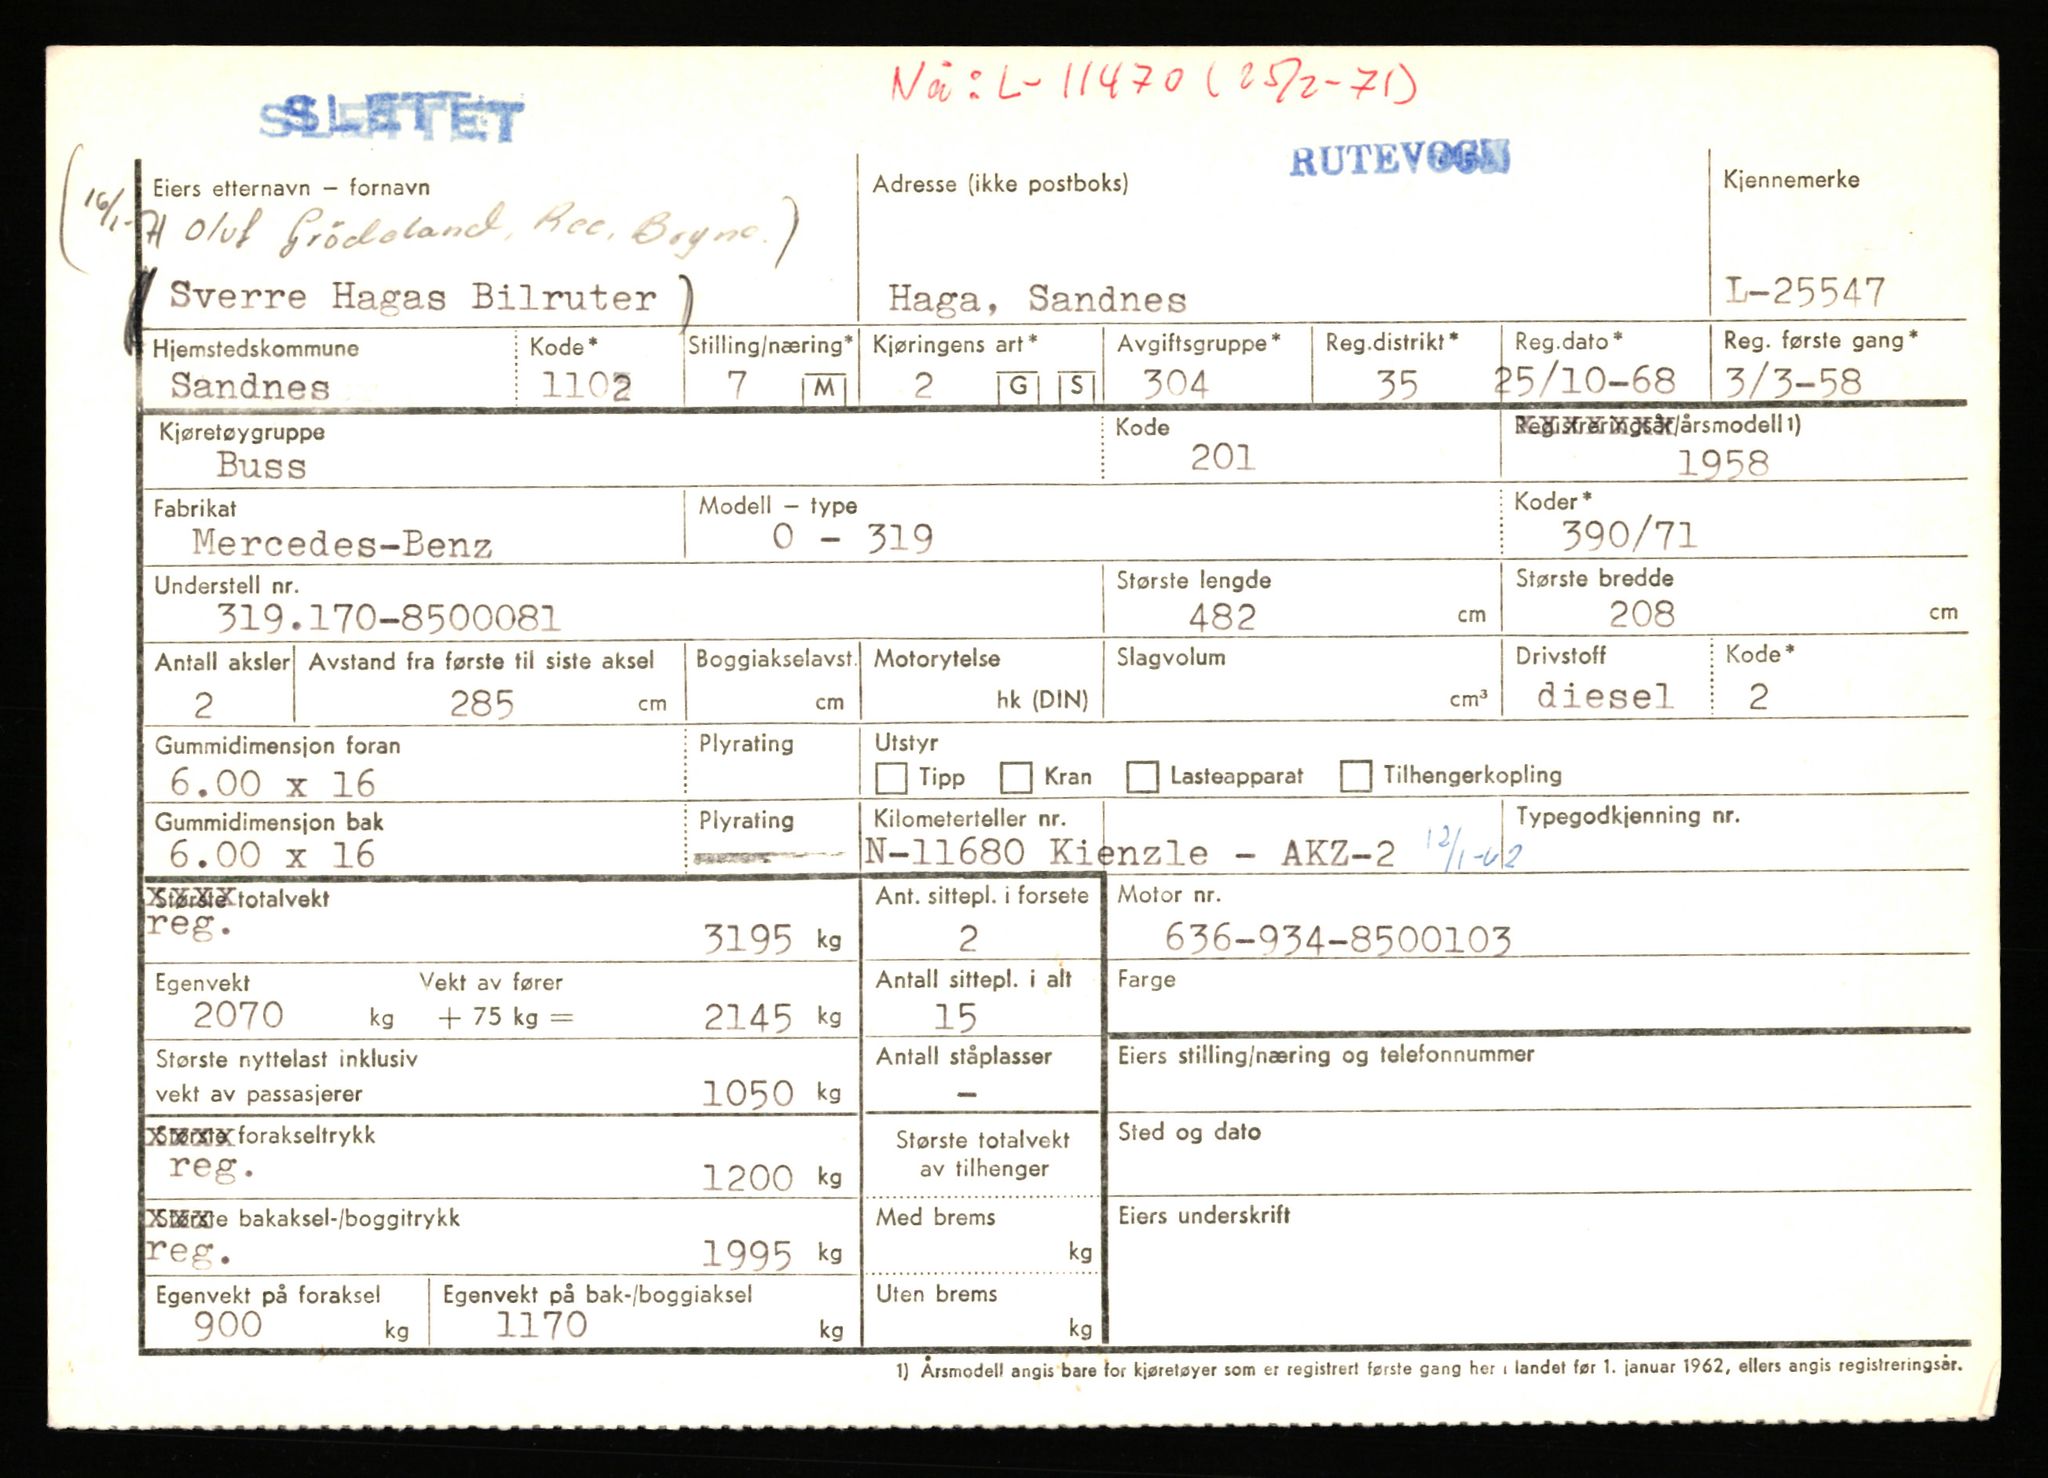 Nå: L-11470 (25/2-71)
SLETTET
RUTEVOGN
Eiers etternavn – fornavn
Adresse (ikke postboks)
Kjennemerke
(16/1-71 Oluf Grödeland, Ree, Bryne.)
(Sverre Hagas Bilruter)
Haga, Sandnes
L-25547
Hjemstedskommune
Kode*
Stilling/næring*
Kjøringens art*
Avgiftsgruppe*
Reg.distrikt*
Reg.dato*
Reg. første gang*
Sandnes
1102
7 M
2 G S
304
35
25/10-68
3/3-58
Kjøretøygruppe
Kode
Registreringsår/årsmodell1)
Buss
201
1958
Fabrikat
Modell – type
Koder*
Mercedes-Benz
O - 319
390/71
Understell nr.
Største lengde
Største bredde
319.170-8500081
482 cm
208 cm
Antall aksler
Avstand fra første til siste aksel
Boggiakselavst.
Motorytelse
Slagvolum
Drivstoff
Kode*
2
285 cm
cm
hk (DIN)
cm³
diesel
2
Gummidimensjon foran
Plyrating
Utstyr
6.00 x 16
Tipp Kran Lasteapparat Tilhengerkopling
Gummidimensjon bak
Plyrating
Kilometerteller nr.
Typegodkjenning nr.
6.00 x 16
N-11680 Kienzle - AKZ-2
Største totalvekt
Ant. sittepl. i forsete
Motor nr.
reg.
3195 kg
2
636-934-8500103
Egenvekt
Vekt av fører
Antall sittepl. i alt
Farge
2070 kg + 75 kg = 2145 kg
15
Største nyttelast inklusiv
Antall ståplasser
Eiers stilling/næring og telefonnummer
vekt av passasjerer
1050 kg
-
Største forakseltrykk
Største totalvekt
av tilhenger
Sted og dato
reg.
1200 kg
Største bakaksel-/boggitrykk
Med brems
Eiers underskrift
reg.
1995 kg
kg
Egenvekt på foraksel
Egenvekt på bak-/boggiaksel
Uten brems
900 kg
1170 kg
kg
1) Årsmodell angis bare for kjøretøyer som er registrert første gang her i landet før 1. januar 1962, ellers angis registreringsår.